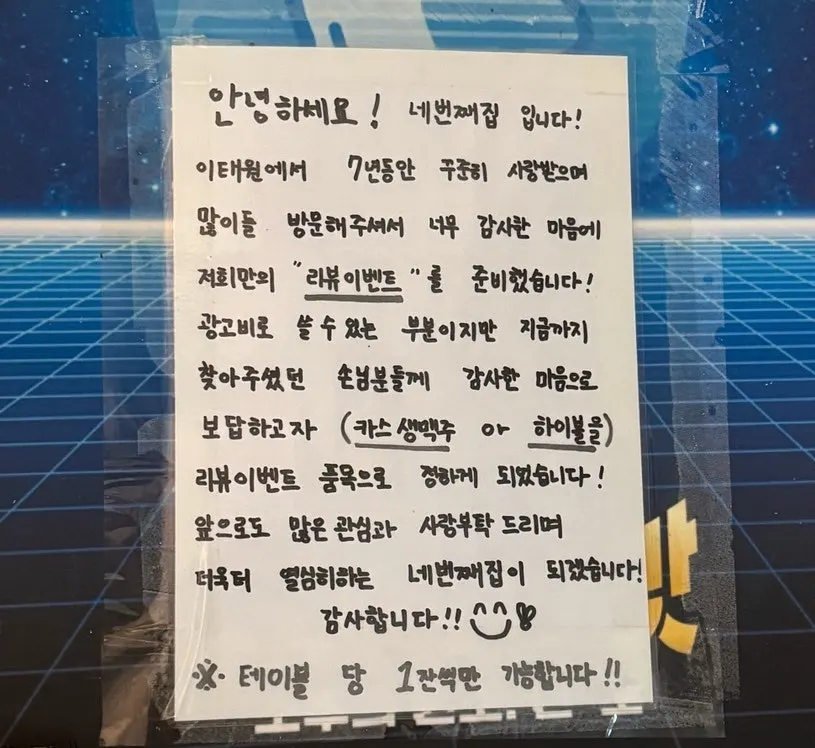 안녕하세요! 네번째집 입니다!
이태원에서 7년동안 꾸준히 사랑받으며
많이들 방문해주셔서 너무 감사한 마음에
저희만의 "리뷰이벤트"를 준비했습니다!
광고비로 쓸 수 있는 부분이지만 지금까지
찾아주셨던 손님분들께 감사한 마음으로
보답하고자 (카스생맥주 or 하이볼을)
리뷰이벤트 품목으로 정하게 되었습니다!
앞으로도 많은 관심과 사랑부탁 드리며
더욱더 열심히하는 네번째집이 되겠습니다!
감사합니다!! ^^
※ 테이블 당 1잔씩만 가능합니다!!